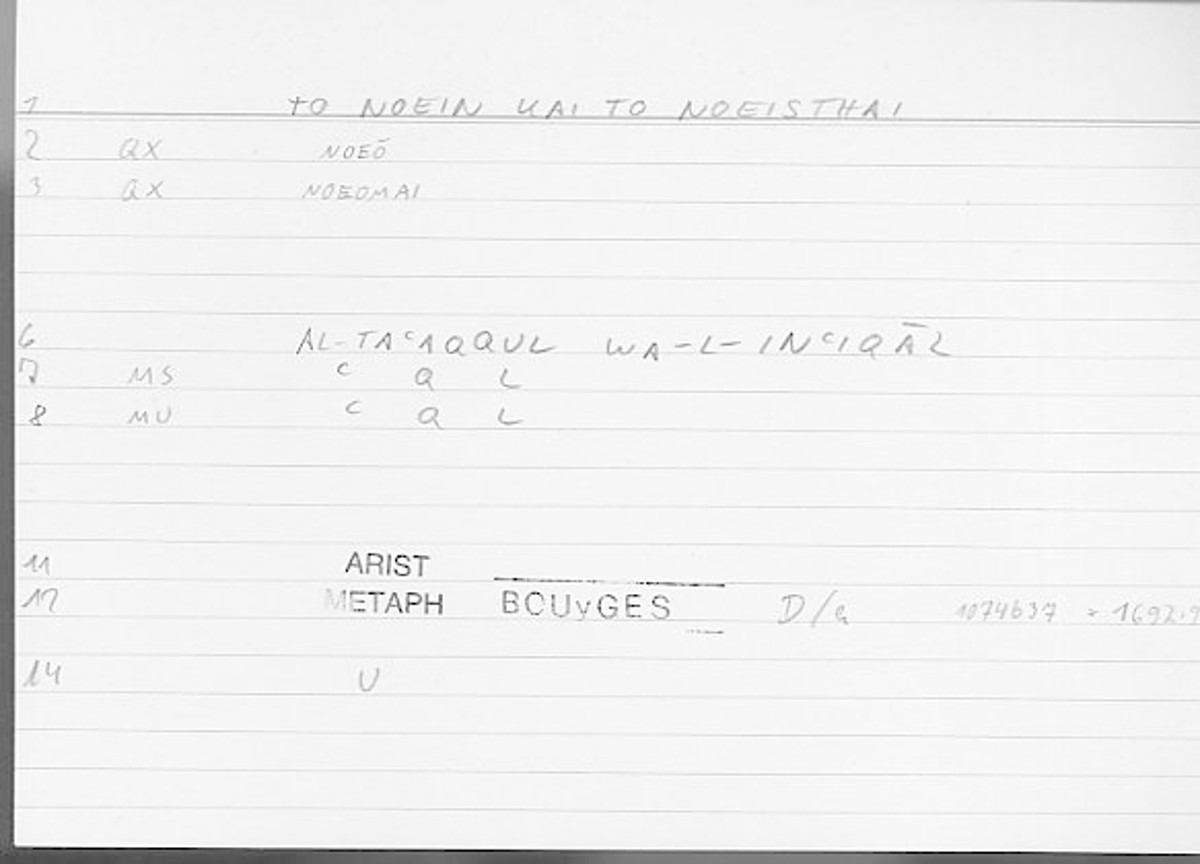 1 TO NOEIN KAI TO NOEISTHAI
2 QX NOEŌ
3 QX NOEOMAI
6 AL-TAᶜAQQUL WA-L-INᶜIQĀL
7 MS ᶜ Q L
8 MU ᶜ Q L
11 ARIST
12 METAPH BOUyGES D/a 1074b37 1692.9
14 U